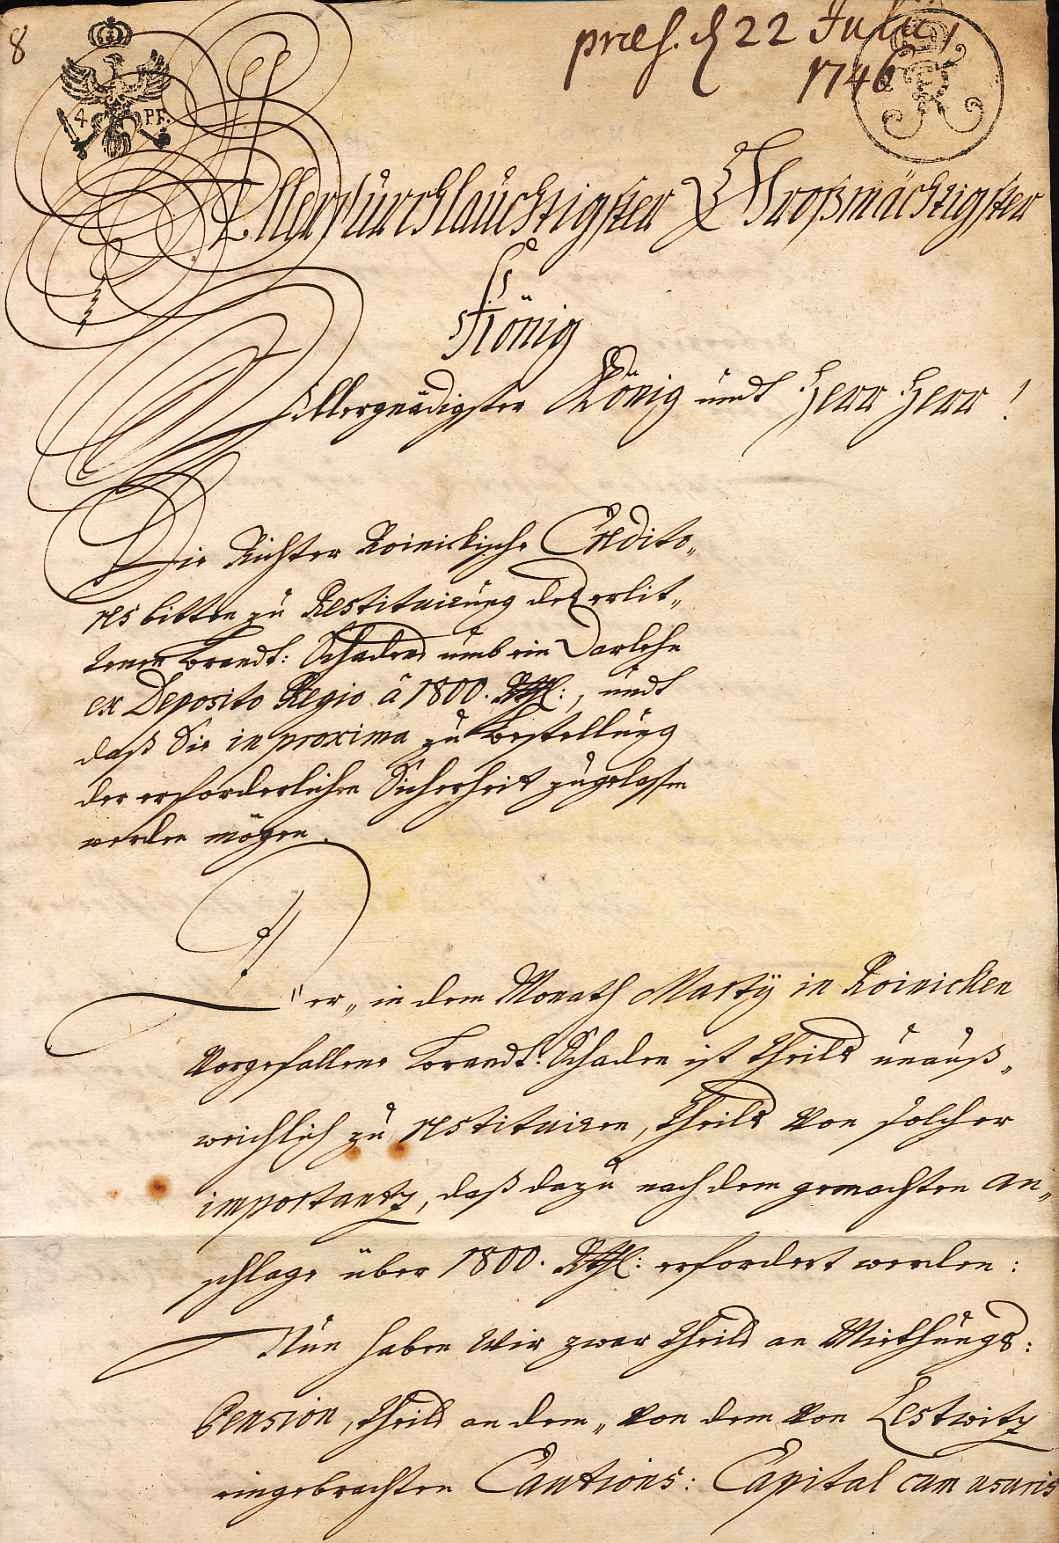 8
præs. d 22 Julii,
1746
4 PF.
FR
Allerdurchlauchtigster Großmächtigster
König
Allergnädigster König undt Herr Herr!
Die Richter Roinickische Credito„
res bitten zu Restituirung deß erlit„
tenen Brandt: Schadens umb ein Darlehn
ex Deposito Regio â 1800. Rthl:, undt
daß Sie in proxima zu Bestellung
der erforderlichen Sicherheit zugelassen
werden mögen.
Der„ in dem Monath Martÿ in Roinicken
Vorgefallene Brandt: Schaden ist theils unauß„
weichlich zu restituiren, theils von solcher
importantz, daß dazu nach dem gemachten An„
schlage über 1800. Rthl: erfordert werden:
Nun haben Wir zwar theils an Miethungs:
Pension, theils an dem„ von dem von Lestwitz
eingebrachten Cautions: Capital cum usuris